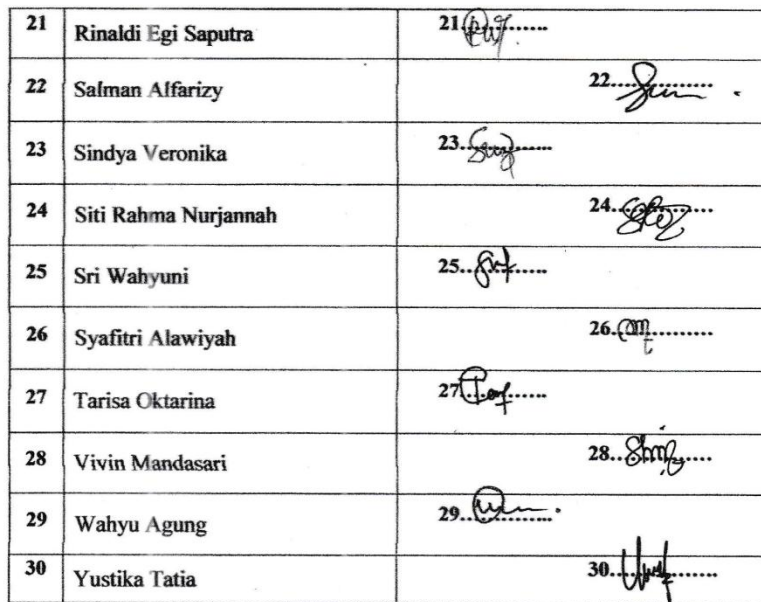 21 Rinaldi Egi Saputra 21...........
22 Salman Alfarizy 22...............
23 Sindya Veronika 23...............
24 Siti Rahma Nurjannah 24...............
25 Sri Wahyuni 25...............
26 Syafitri Alawiyah 26...............
27 Tarisa Oktarina 27...............
28 Vivin Mandasari 28...............
29 Wahyu Agung 29...............
30 Yustika Tatia 30...............